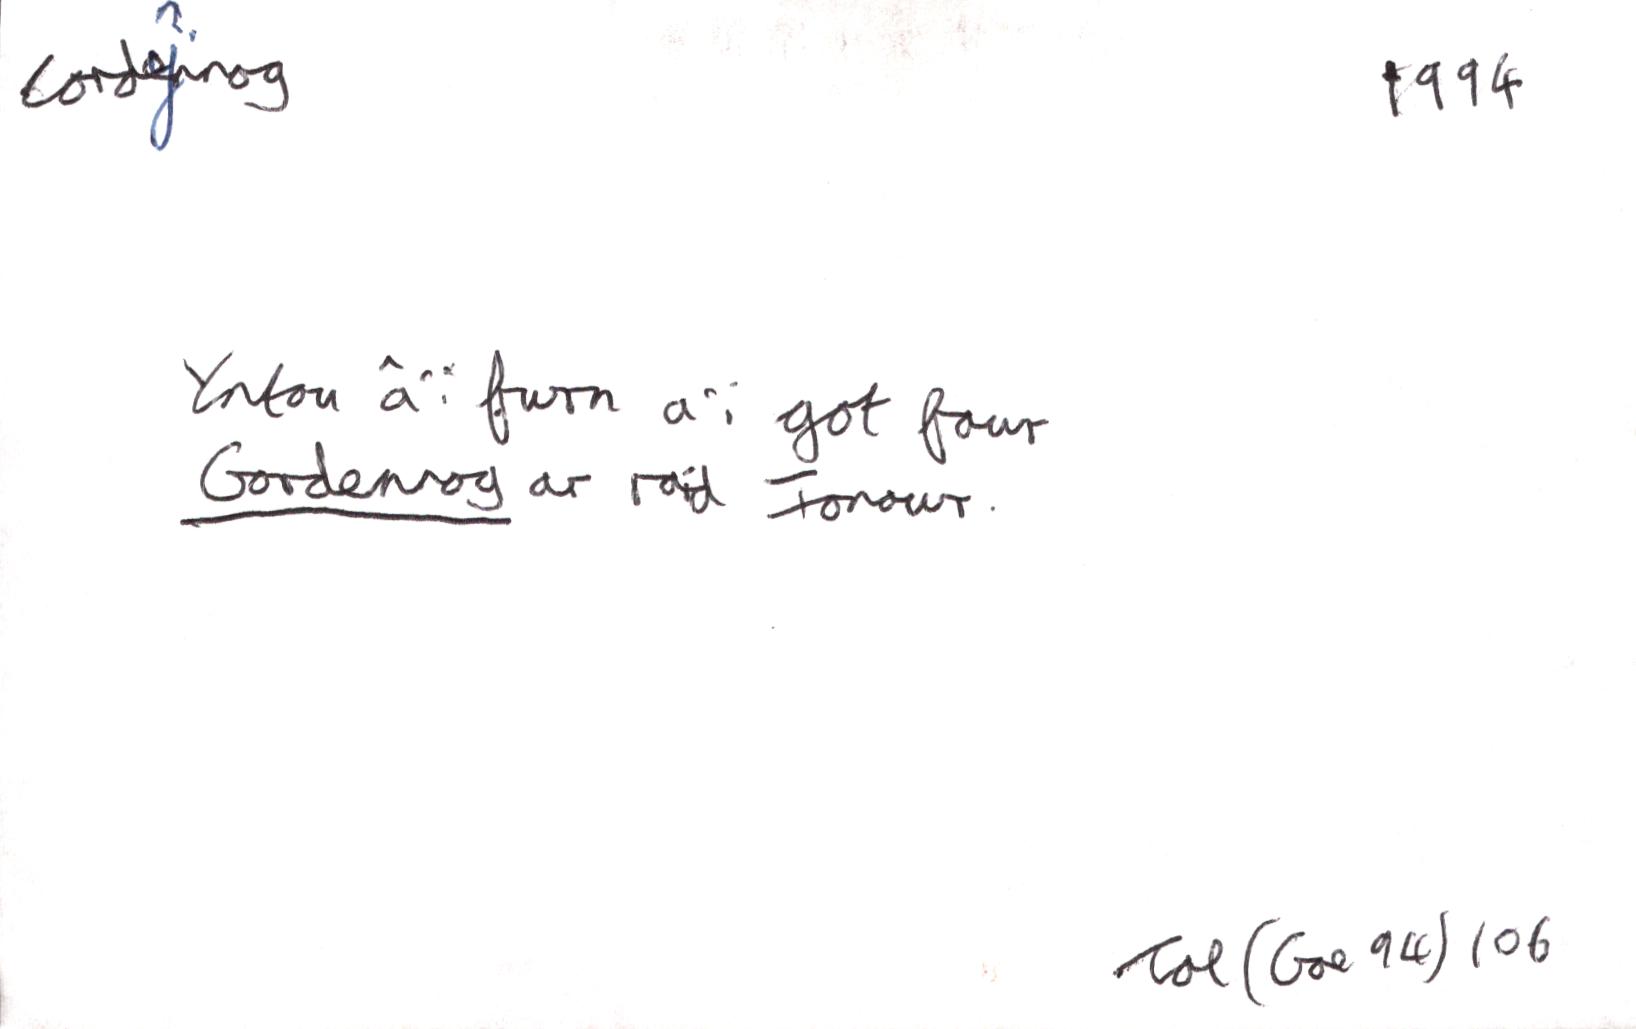 Cordennog 1994
Yntou â'i furn a'i got fawr
Gordennog ar raid Ionawr.
Col (Gae 94) 106